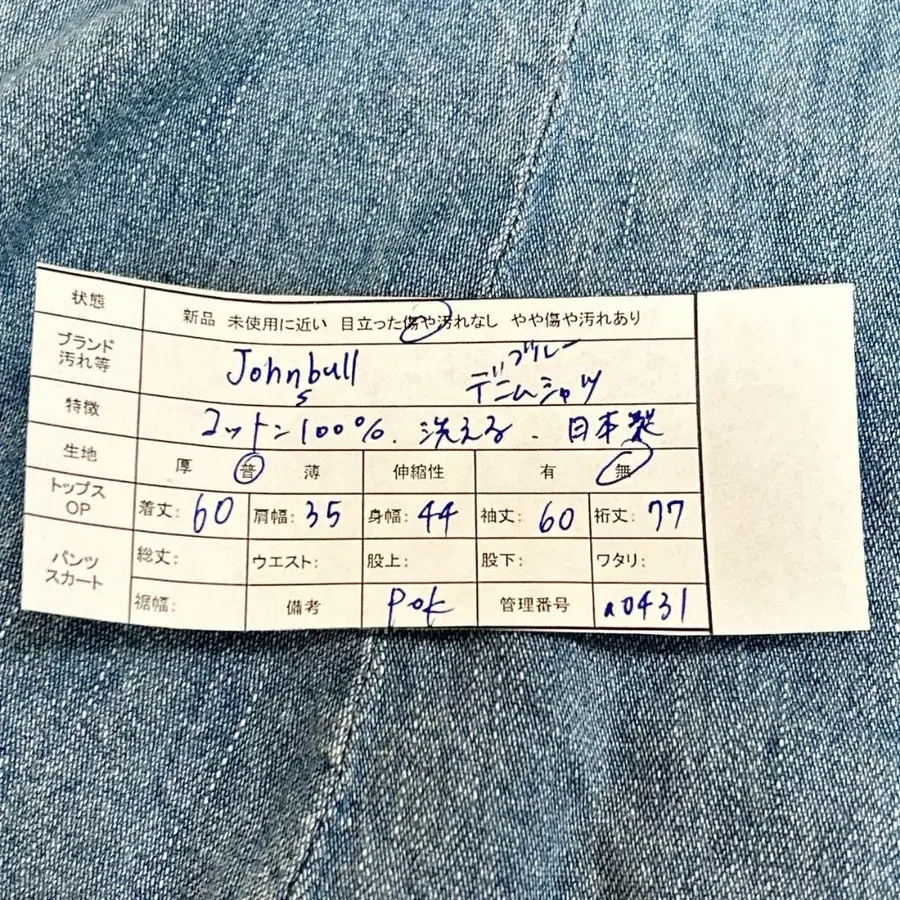 状態 新品 未使用に近い 目立った傷や汚れなし やや傷や汚れあり
ブランド 汚れ等 Johnbull S ブルー デニムシャツ
特徴 コットン100%. 洗える. 日本製
生地 厚 普 薄 伸縮性 有 無
トップス OP 着丈: 60 肩幅: 35 身幅: 44 袖丈: 60 裄丈: 77
パンツ スカート 総丈: ウエスト: 股上: 股下: ワタリ:
裾幅: 備考 pok 管理番号 a0431